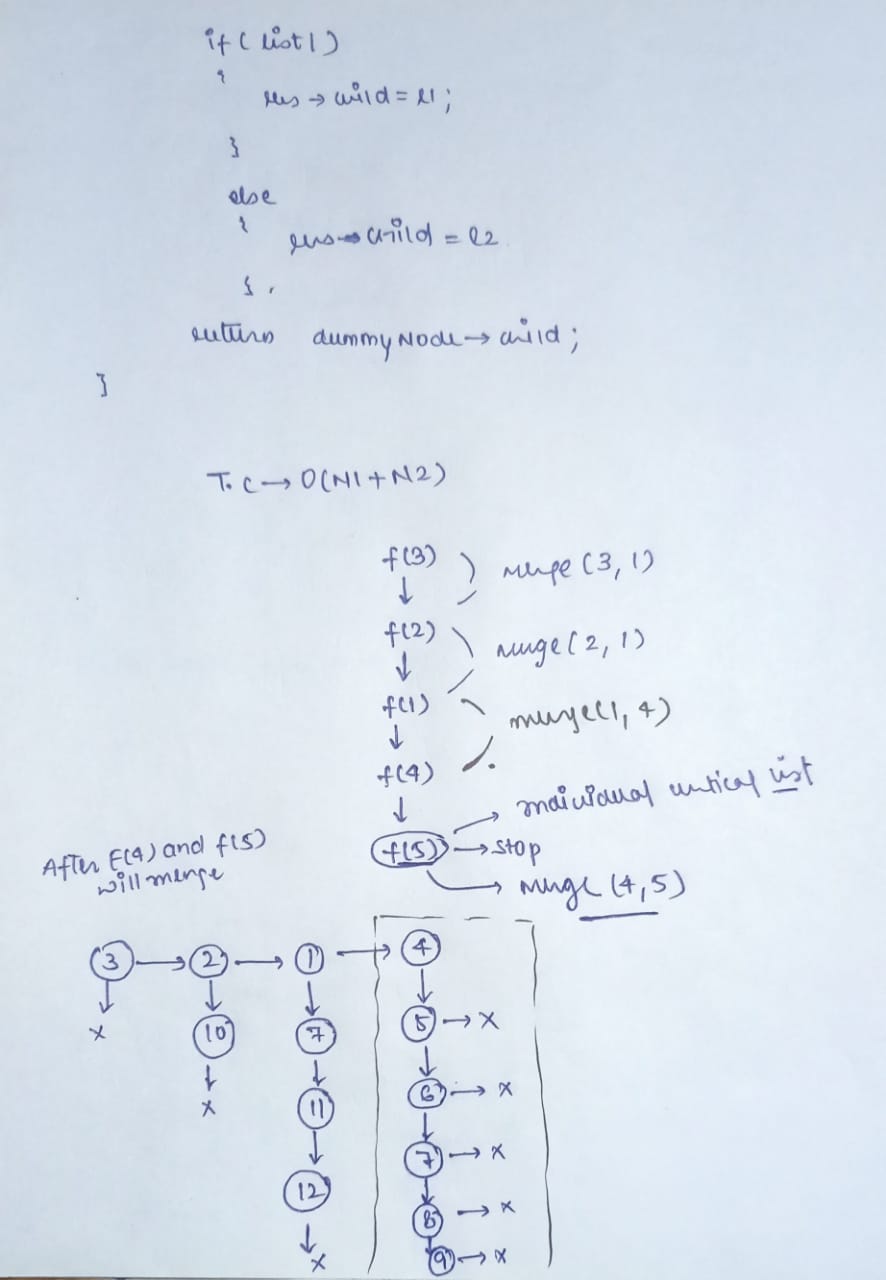 if ( list1 )
{
res → child = l1 ;
}
else
{
res → child = l2
} ,
return dummyNode → child ;
}
T. C → O(N1 + N2)
f(3)
merge (3, 1)
↓
f(2)
merge (2, 1)
↓
f(1)
merge(1, 4)
↓
f(4)
↓
→ individual vertical list
f(5) → stop
→ merge (4, 5)
After F(4) and f(5)
will merge
3 → 2 → 1 → 4
↓ ↓ ↓ ↓
x 10 7 5 → x
↓ ↓ ↓
x 11 6 → x
↓ ↓
12 7 → x
↓ ↓
x 8 → x
↓
9 → x